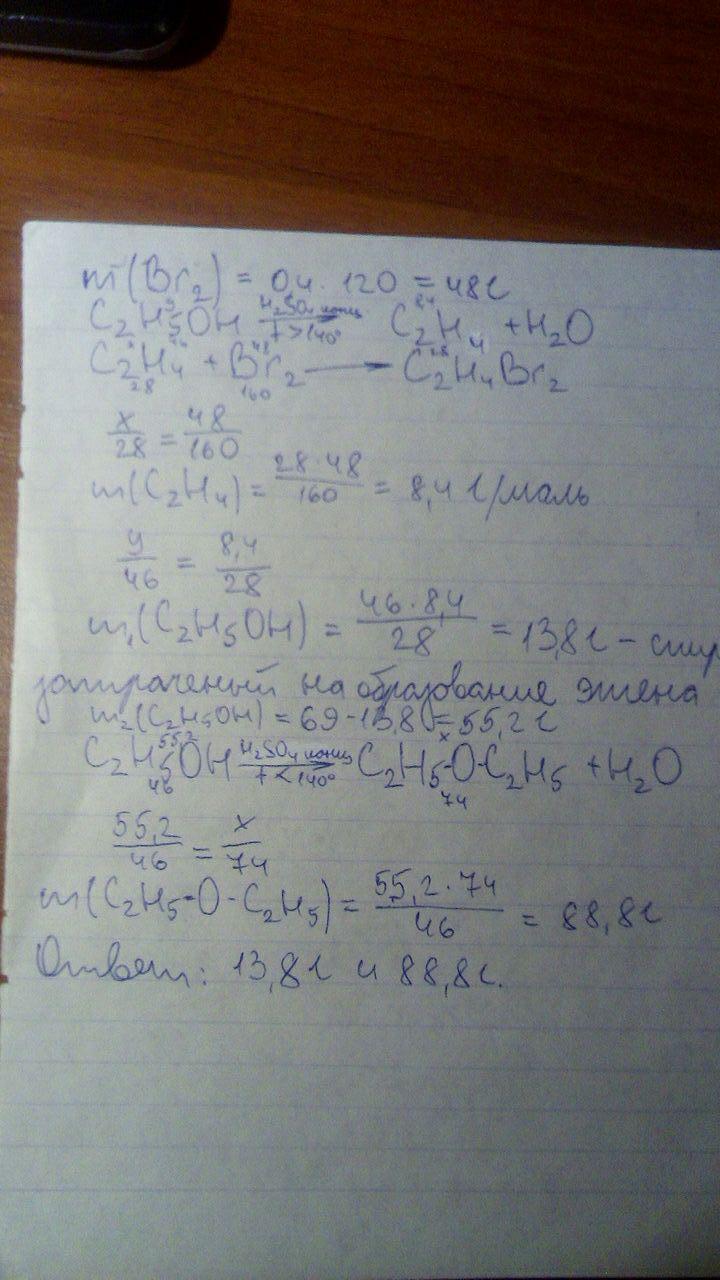 m(Br₂) = 0,4 · 120 = 48г
C₂H₅OH →(H₂SO₄ конц, t>140°) C₂H₄ + H₂O
C₂H₄ + Br₂ → C₂H₄Br₂
28 160
x/28 = 48/160
m(C₂H₄) = 28·48/160 = 8,4 г/моль
y/46 = 8,4/28
m₁(C₂H₅OH) = 46·8,4/28 = 13,8г –
затраченый на образование этена
m₂(C₂H₅OH) = 69-13,8 = 55,2 г
55,2 x
C₂H₅OH →(H₂SO₄ конц, t<140°) C₂H₅-O-C₂H₅ + H₂O
46 74
55,2/46 = x/74
m(C₂H₅-O-C₂H₅) = 55,2·74/46 = 88,8г
Ответ: 13,8г и 88,8г.